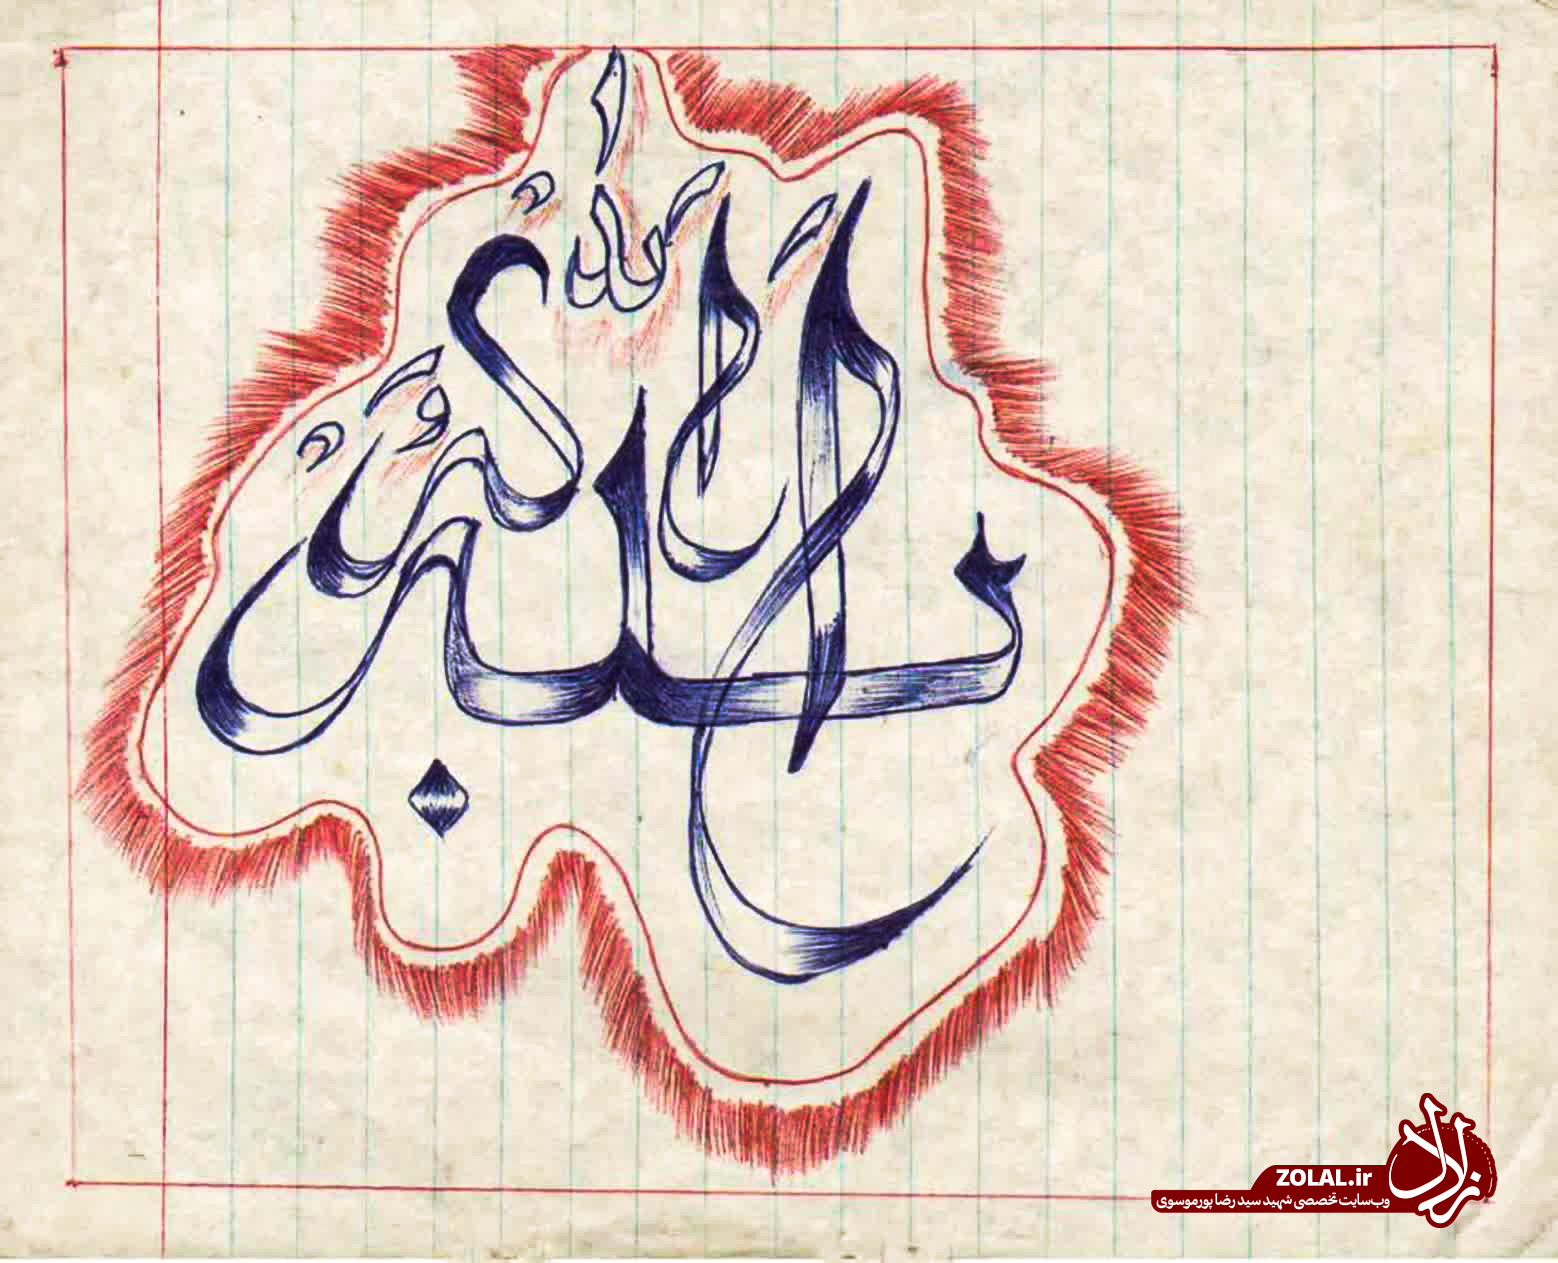 الله اکبر
زلال
ZOLAL.ir
وب‌سایت تخصصی شهید سید رضا پورموسوی